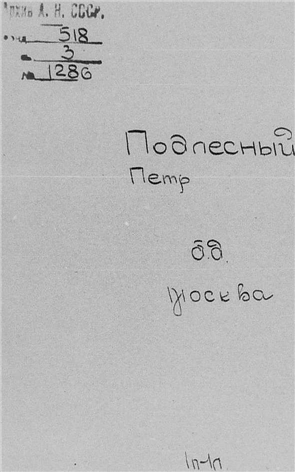 Архив А. Н. СССР.
518
3
№ 1286
Подлесный
Петр
б.д.
Москва
1п-1п